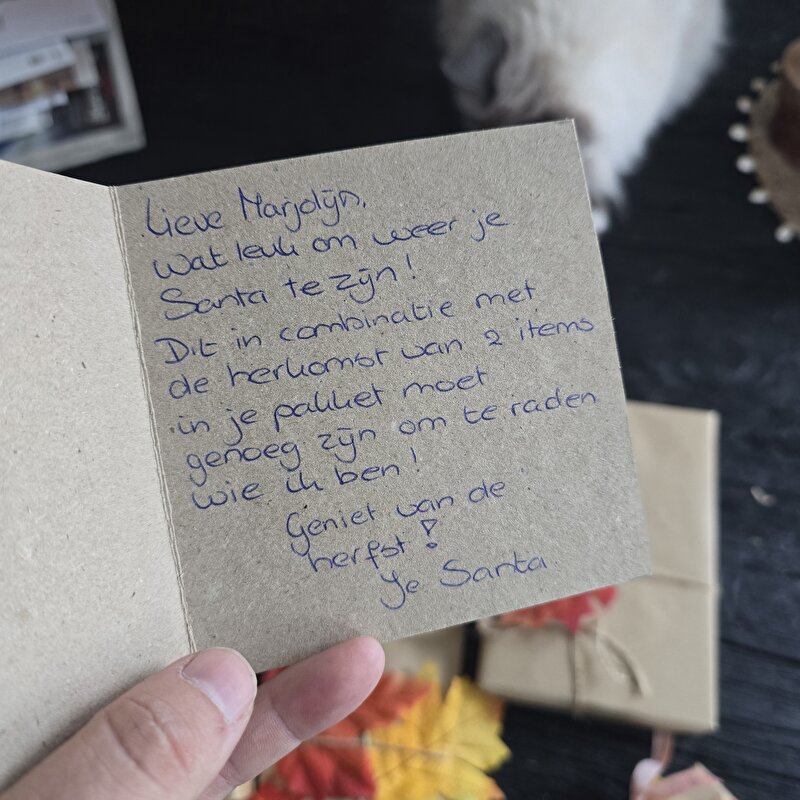 Lieve Marjolijn,
wat leuk om weer je
Santa te zijn!
Dit in combinatie met
de herkomst van 2 items
in je pakket moet
genoeg zijn om te raden
wie ik ben!
Geniet van de
herfst!
Je Santa.